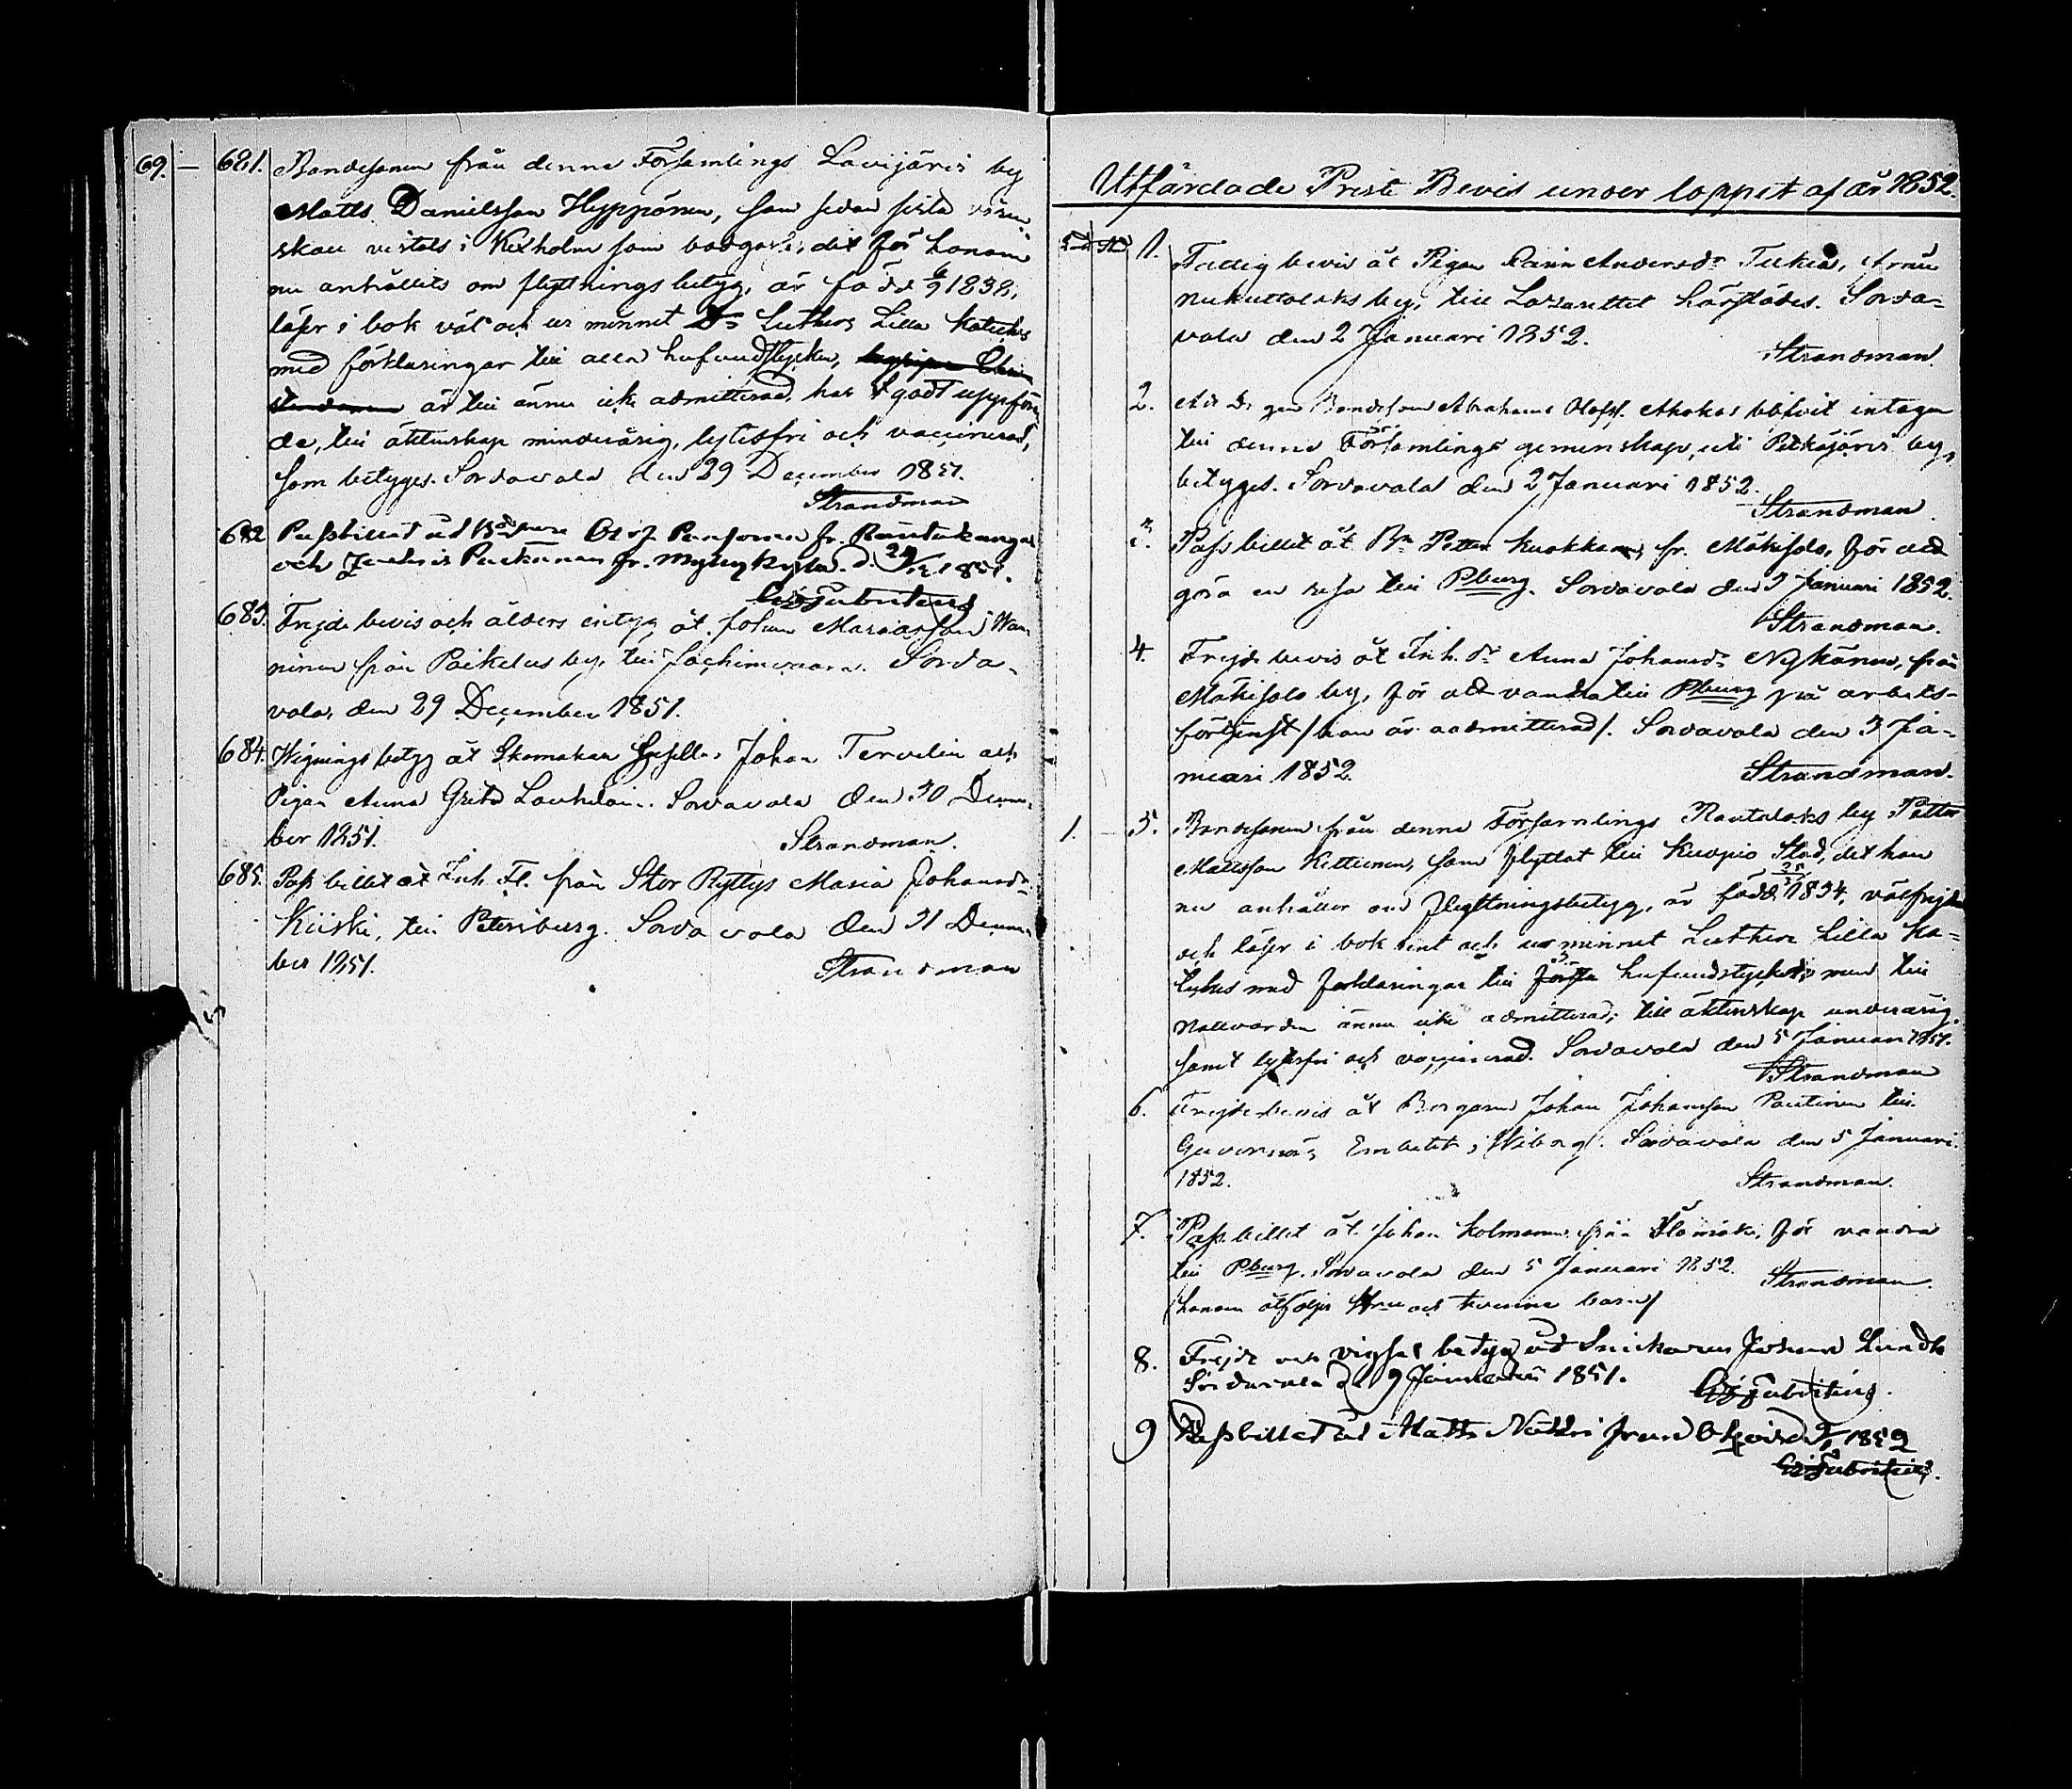 69. — 681. Bondesonen från denna Församlings Lavijärvi by
Matts Danielsson Hyppönen, som sedan sista
skall vistats i Kexholm som det för honom
nu anhållits om flyttningsbetyg, är född 6/9 1838,
läser i bok väl och ur minnet Dr Luthers Lilla Kateches
med förklaringar till alla hufvudstycken,
är till ännu icke admitterad, har godt uppföran-
de, till äktenskap minderårig, lytesfri och vaccinerad,
som betygas. Sordavala den 29 December 1851.
Strandman
682 Passbillet åt Olof fr. Rantakangas
och fr. Myllykylä d. 29/12 1851.
Fabritius
683. Frejdebevis och ålders intyg åt Johan Wan-
ninen från Paikelus by, till Jochimvaara. Sorda-
vala, den 29 December 1851.
684. Wignings betyg åt Skomakare Gesällen Johan Tervelin och
Pigan Anna Greta . Sordavala den 30 Decem-
ber 1851. Strandman.
685. Pass billet åt Inh. Fl. från Stor Ryttys Maria Johansdr
Kiiski, till Petersburg. Sordavala den 31 Decem-
ber 1851. Strandman
Utfärdade Prest Bevis under loppet af år 1852.
1. Fattig bevis åt Pigan Andersdr , från
by, till Lazarettet härstädes. Sorda-
vala den 2 Januari 1852.
Strandman.
2. Att Bondesonen Abraham Olofss. blifvit intagen
till denna Församlings gemenskap, uti by,
betygas. Sordavala den 2 Januari 1852.
Strandman.
3. Pass billet åt Bn Petter Kuokkanen, fr. Mäkisalo, för att
göra en resa till Pburg. Sordavala den 3 Januari 1852.
Strandman.
4. Frejde bevis åt Inh. dr Anna Johansdr Nykänen, från
Mäkisalo by, för att vandra till Pburg på arbets-
förtjenst /hon är admitterad/. Sordavala den 3 Ja-
nuari 1852. Strandman.
1. — 5. Bondesonen från denna Församlings Rautalaks by Petter
Mattsson Kettunen, som flyttat till Kuopio Stad, det han
nu anhåller om flyttningsbetyg, är född 1834, välfrejdad
och läser i bok rent och ur minnet Luthers Lilla Ka-
teches med förklaringar till första hufvudstycket, men till
Nattvarden ännu icke admitterad; till äktenskap underårig,
samt lytesfri och vaccinerad. Sordavala den 5 Januari 1851.
Strandman
6. Frejdebevis åt Borgaren Johan Johansson Pautinen till
Guvernörs Embetet i Wiborg. Sordavala den 5 Januari
1852. Strandman.
7. Pass billet åt Johan Kolmonen från , för vandra
till Pburg. Sordavala den 5 Januari 1852. Strandman.
/honom åtföljer Hru och tvenne barn/
8. Frejde och vigsel betyg åt Snickaren Johan Lindh
Sordavala d. 9 Januarii 1851. Fabritius.
9 Passbillet åt Matts från 1852
Fabritius.